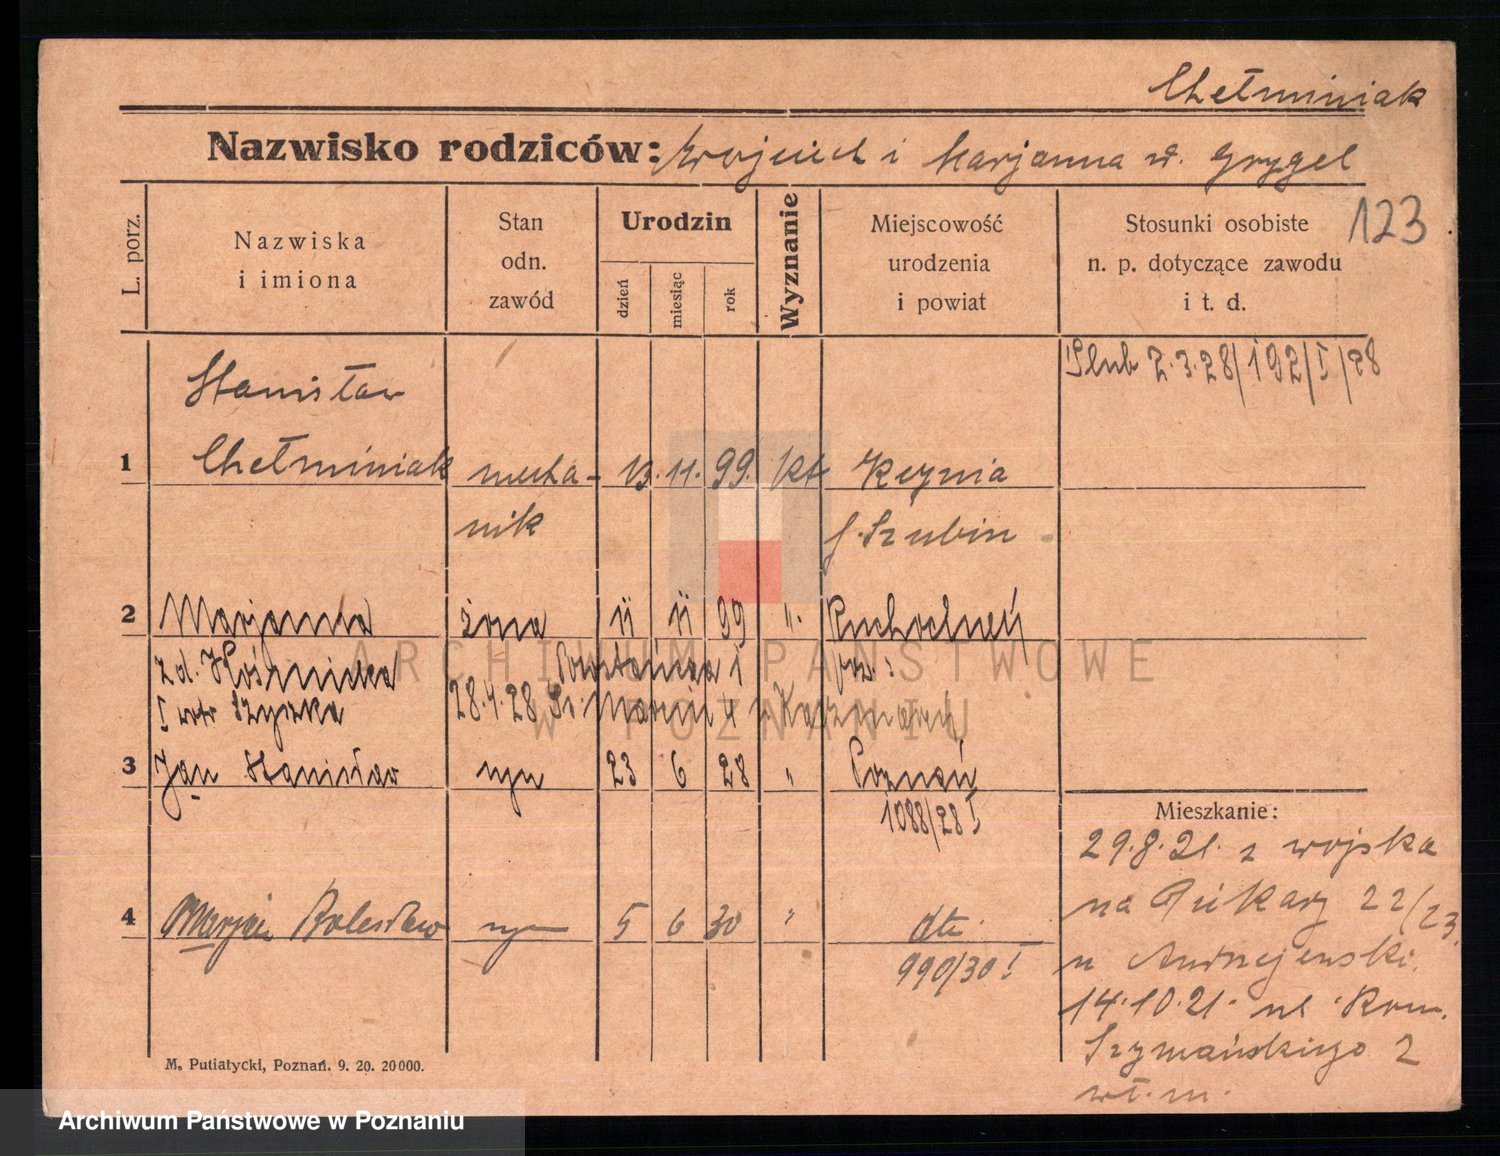 Chełminiak
Nazwisko rodziców: Wojciech i Marjanna z d. Grygel
123
L. porz.
Nazwiska
i imiona
Stan
odn.
zawód
Urodzin
dzień
miesiąc
rok
Wyznanie
Miejscowość
urodzenia
i powiat
Stosunki osobiste
n. p. dotyczące zawodu
i t. d.
Ślub 2.3.28/192/I/28
Stanisław
1 Chełminiak mecha- 13. 11. 99. kt Kcynia
nik Szubin
2 Marjanna żona 11 11 99 ".
z d. Kośmicka Powstańcza 1 pow:
I voto Szyszka 28.4.28 Św. Marcin 4
3 Jan Stanisław syn 23 6 28 " Poznań
1088/28 I
4 Marjan Bolesław syn 5 6 30 " dto.
990/30 I
Mieszkanie:
29.8.21. z wojska
na Piekary 22/23.
u Andrzejewski.
14.10.21. ul. Rom.
Szymańskiego 2
wł. m.
M. Putiatycki, Poznań. 9. 20. 20000.
ARCHIWUM PAŃSTWOWE
W POZNANIU
Archiwum Państwowe w Poznaniu